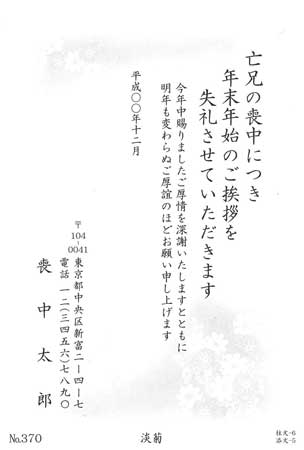 亡兄の喪中につき
年末年始のご挨拶を
失礼させていただきます
今年中賜りましたご厚情を深謝いたしますとともに
明年も変わらぬご厚誼のほどお願い申し上げます
平成〇〇年十二月
〒104-0041
東京都中央区新富二ー四ー七
電話 一二(三四五六)七八九〇
喪中太郎
No.370
淡菊